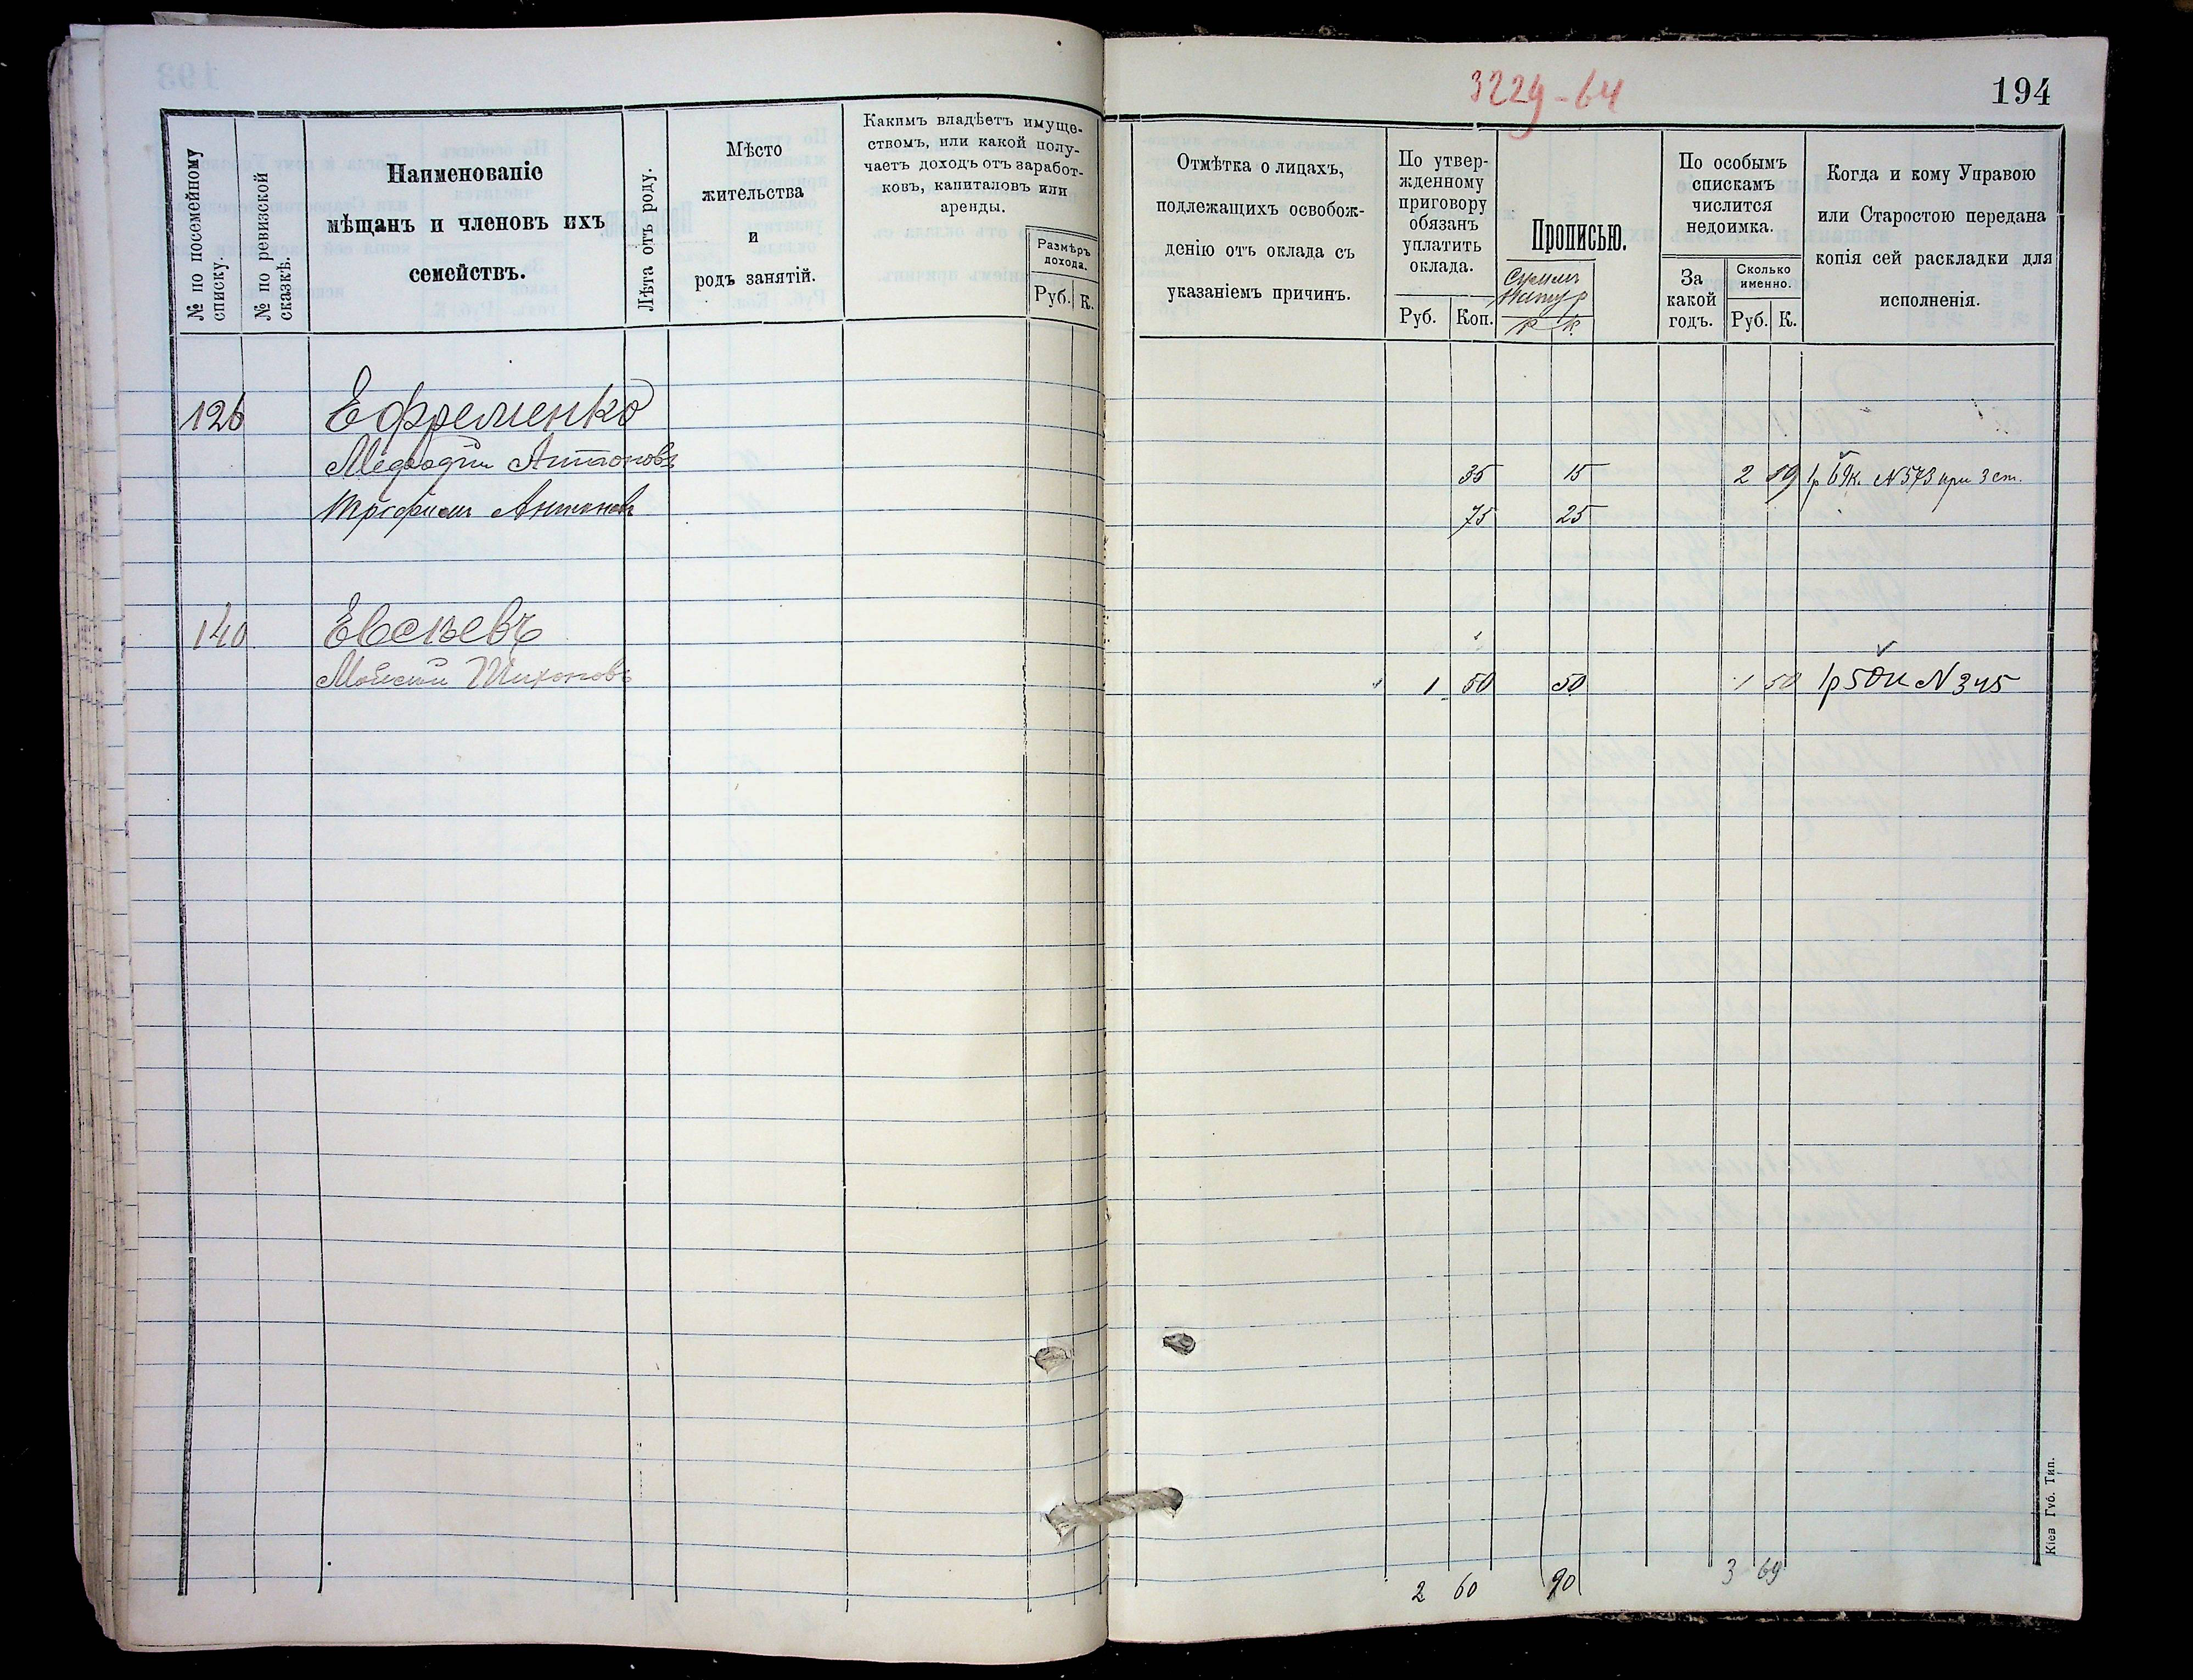 3229-64
194
№ по посемейному
списку.
№ по ревизской
сказкѣ.
Наименованіе
мѣщанъ и членовъ ихъ
семействъ.
Лѣта отъ роду.
Мѣсто
жительства
и
родъ занятій.
Какимъ владѣетъ имуще-
ствомъ, или какой полу-
чаетъ доходъ отъ заработ-
ковъ, капиталовъ или
аренды.
Размѣръ
дохода.
Руб. К.
Отмѣтка о лицахъ,
подлежащихъ освобож-
денію отъ оклада съ
указаніемъ причинъ.
По утвер-
жденному
приговору
обязанъ
уплатить
оклада.
Руб. Коп.
Прописью.
р к.
По особымъ
спискамъ
числится
недоимка.
За
какой
годъ.
Сколько
именно.
Руб. К.
Когда и кому Управою
или Старостою передана
копія сей раскладки для
исполненія.
126 Ефременко
Мефодій Антоновъ 35 15 2 19 1р 69к. № 573 при 3 ст.
Трофим Антоновъ 75 25
140 Евсѣевъ
Мойсей Тихоновъ 1 50 50 1 50 1р 50к № 345
2 60 90 3 69
Кіев Губ. Тип.